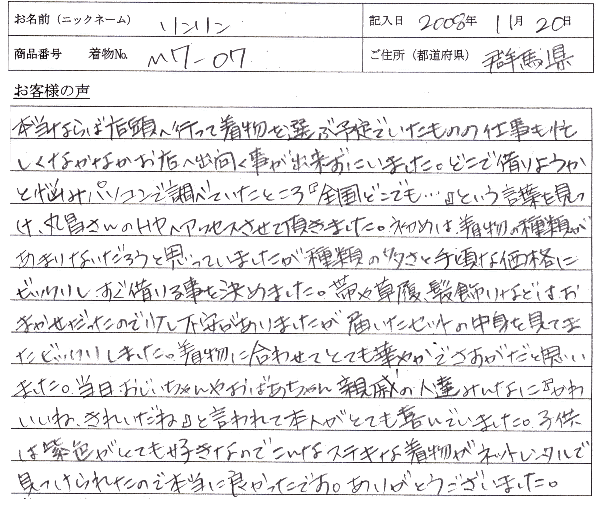 お名前（ニックネーム） リンリン 記入日 2008年 11月 20日
商品番号 着物No. M7-07 ご住所（都道府県） 群馬県
お客様の声
本当ならば店頭へ行って着物を選ぶ予定でいたものの仕事も忙
しくなかなかお店へ出向く事が出来おにいました。どこで借りようか
と悩みパソコンで調べていたところ『全国どこでも…』という言葉を見つ
け、丸昌さんのHPへアクセスさせて頂きました。初めは着物の種類が
あまりないだろうと思っていましたが種類の多さと手頃な価格に
ビックリしすぐ借りる事を決めました。帯や草履、髪飾りなどはお
まかせだったので少し不安がありましたが届いたセットの中身を見てま
たビックリしました。着物に合わせてとても華やかでさすがだと思い
ました。当日おじいちゃんやおばあちゃん親戚の人達みんなに『かわ
いいね、きれいだね』と言われて本人がとても喜んでいました。子供
は紫色がとても好きなのでこんなステキな着物がネットレンタルで
見つけられたので本当に良かったです。ありがとうございました。